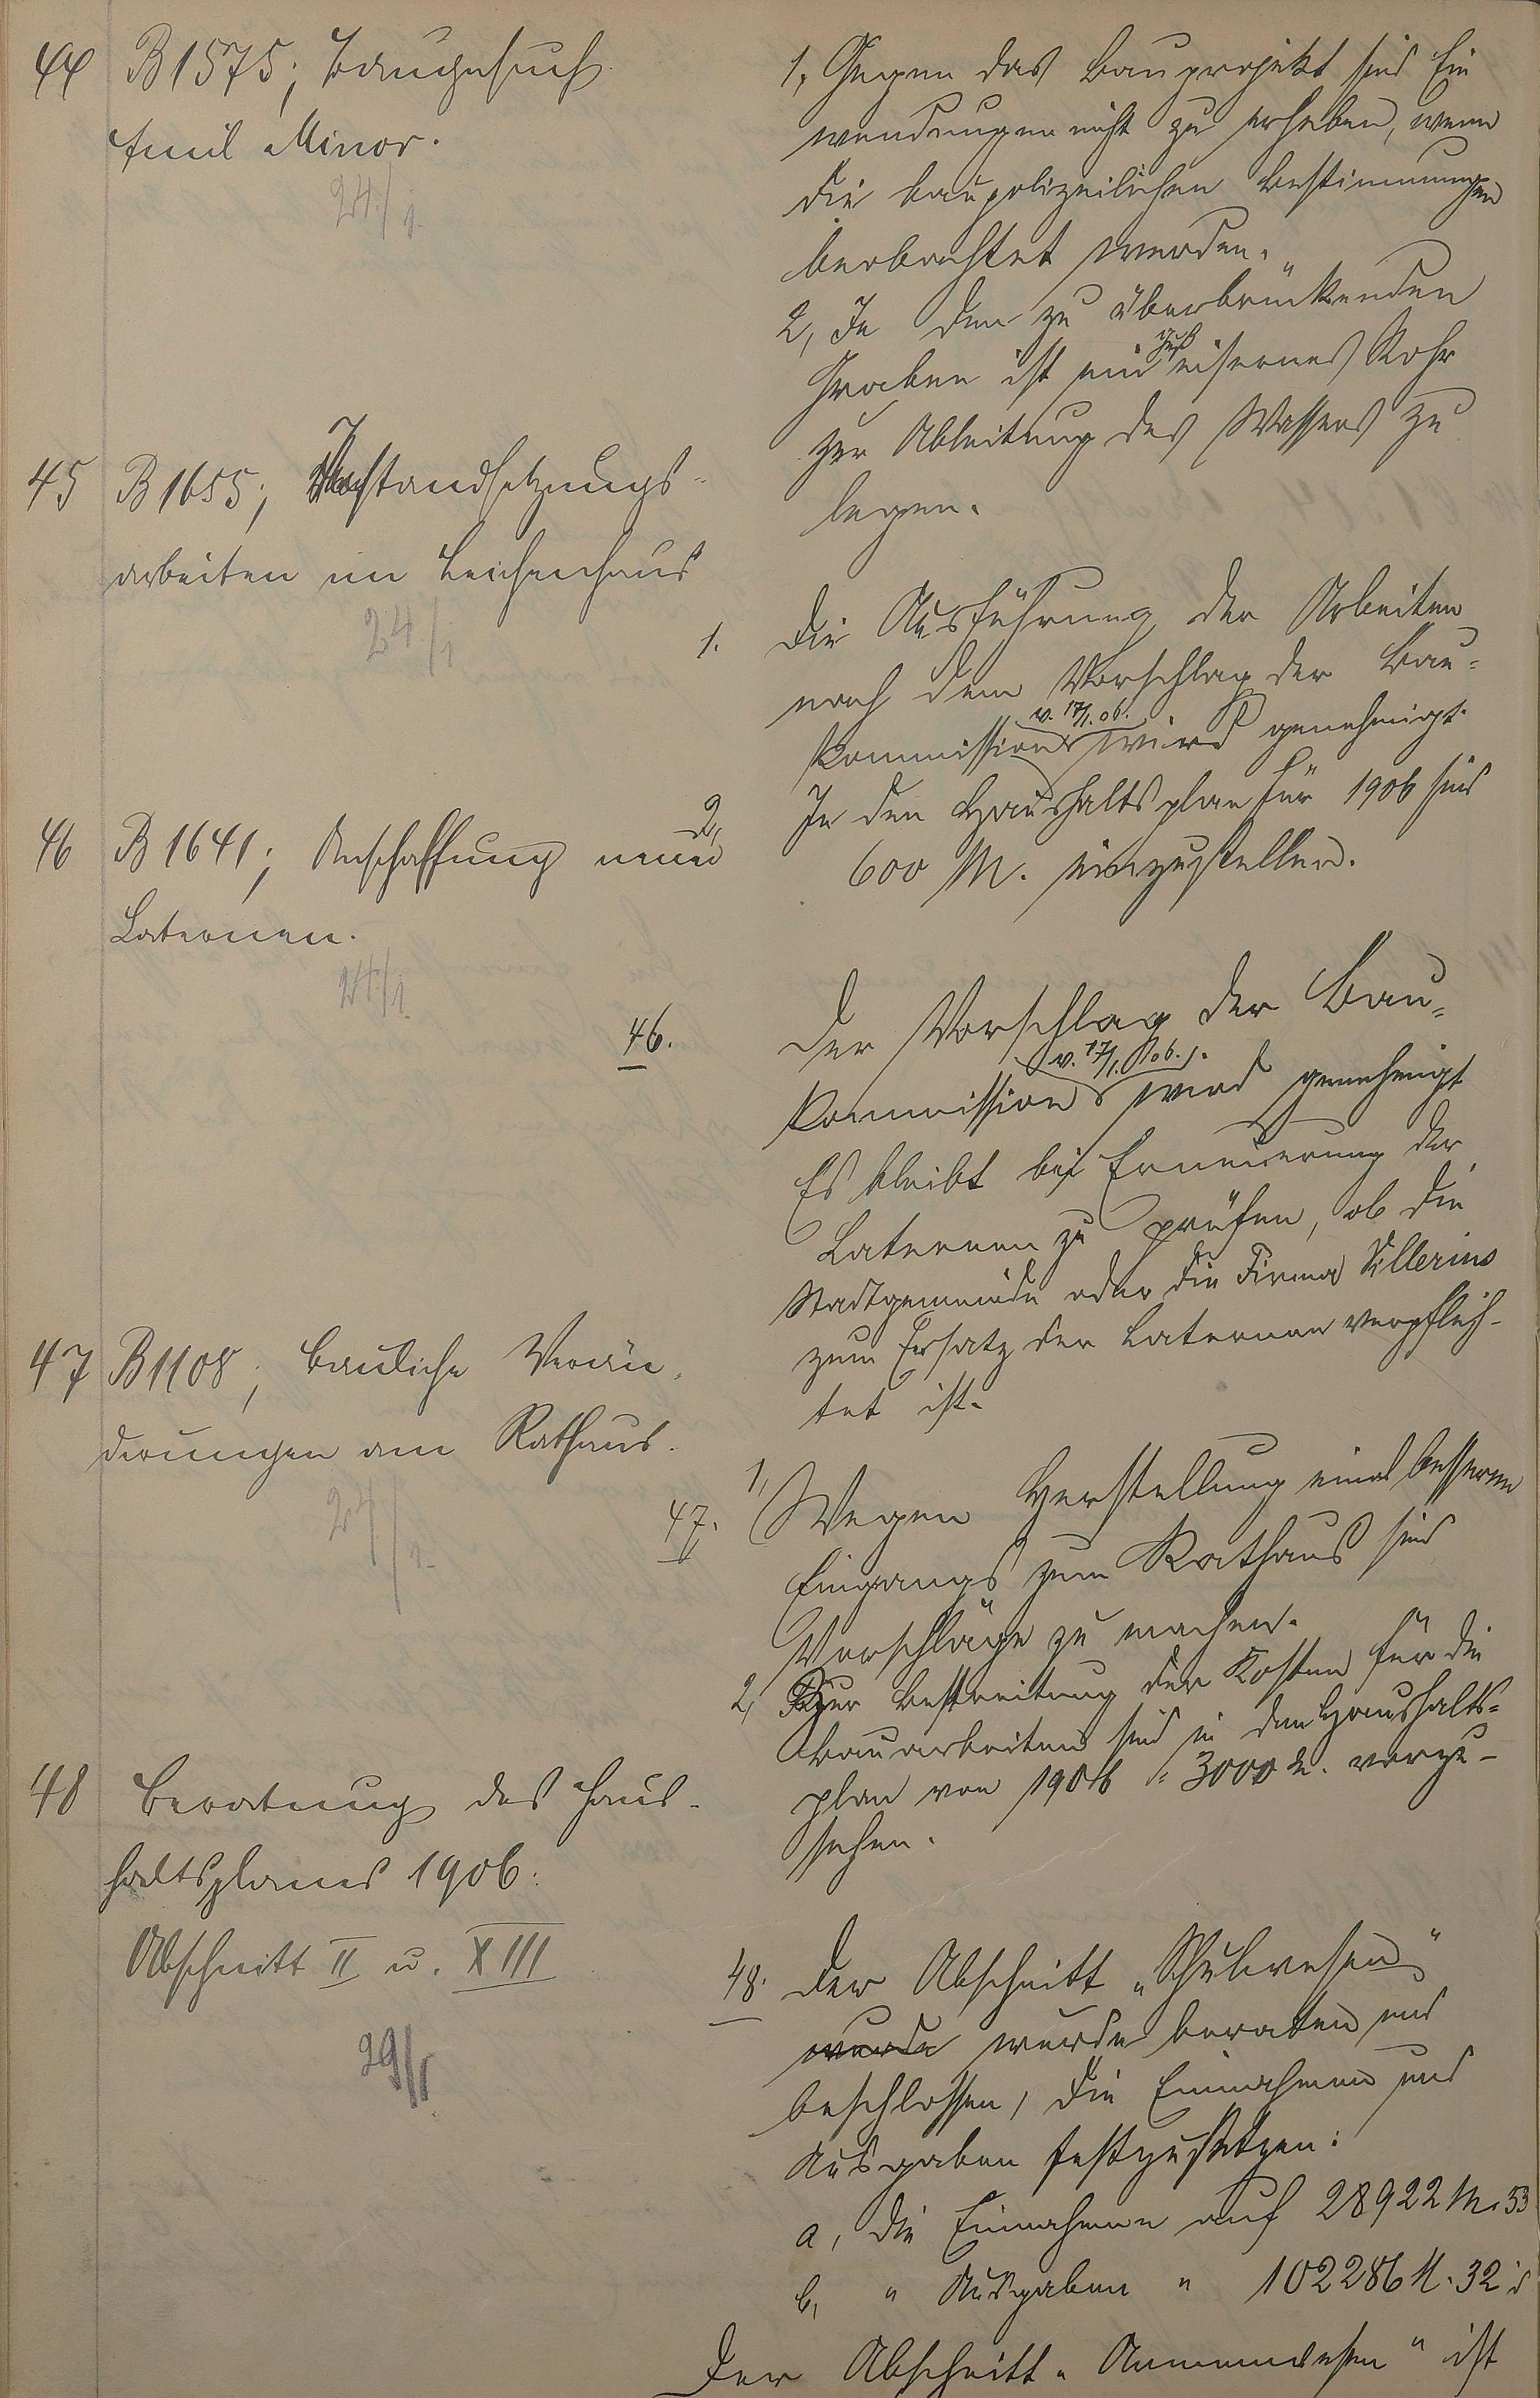 44 B 1575; Baugesuch
Emil Minor.
24/1.
1, Gegen das Bauprojekt sind Ein
wendungen nicht zu erheben, wenn
die baupolizeilichen Bestimmungen
beobachtet werden.
2, In den zu überbrückenden
Graben ist ein guß eisernes Rohr
zur Ableitung des Wassers zu
legen.
45 B 1655; Instandsetzungs-
arbeiten im Leichenhaus
24/1
1. Die Ausführung der Arbeiten
nach dem Vorschlag der Bau-
v. 17/1. 06.
Kommission wird genehmigt.
2, In den Haushaltsplan für 1906 sind
600 M. einzustellen.
46 B 1641; Anschaffung neuer
Laternen.
24/1.
46. Der Vorschlag der Bau-
v. 17/1. 06.
Kommission wird genehmigt
Es bleibt bei Erneuerung der
Laternen zu prüfen, ob die
Stadtgemeinde oder die Firma
zum Ersatz der Laternen verpflich-
tet ist.
47 B 1108; bauliche Verän-
derungen am Rathaus.
24/1.
47. 1, Wegen Herstellung eines besseren
Eingangs zum Rathaus sind
Vorschläge zu machen.
2, Zur Bestreitung der Kosten für die
Bauarbeiten sind in den Haushalts-
plan von 1906 3000 M. vorzu-
sehen.
48 Beratung des Haus-
haltsplanes 1906.
Abschnitt II u. XIII
29/1
48. Der Abschnitt „Schulwesen"
wurde wurde beraten und
beschlossen, die Einnahmen und
Ausgaben festzusetzen:
a, die Einnahmen auf 28922 M. 53
b, " Ausgaben " 102286 M. 32
Der Abschnitt „Armenwesen" ist